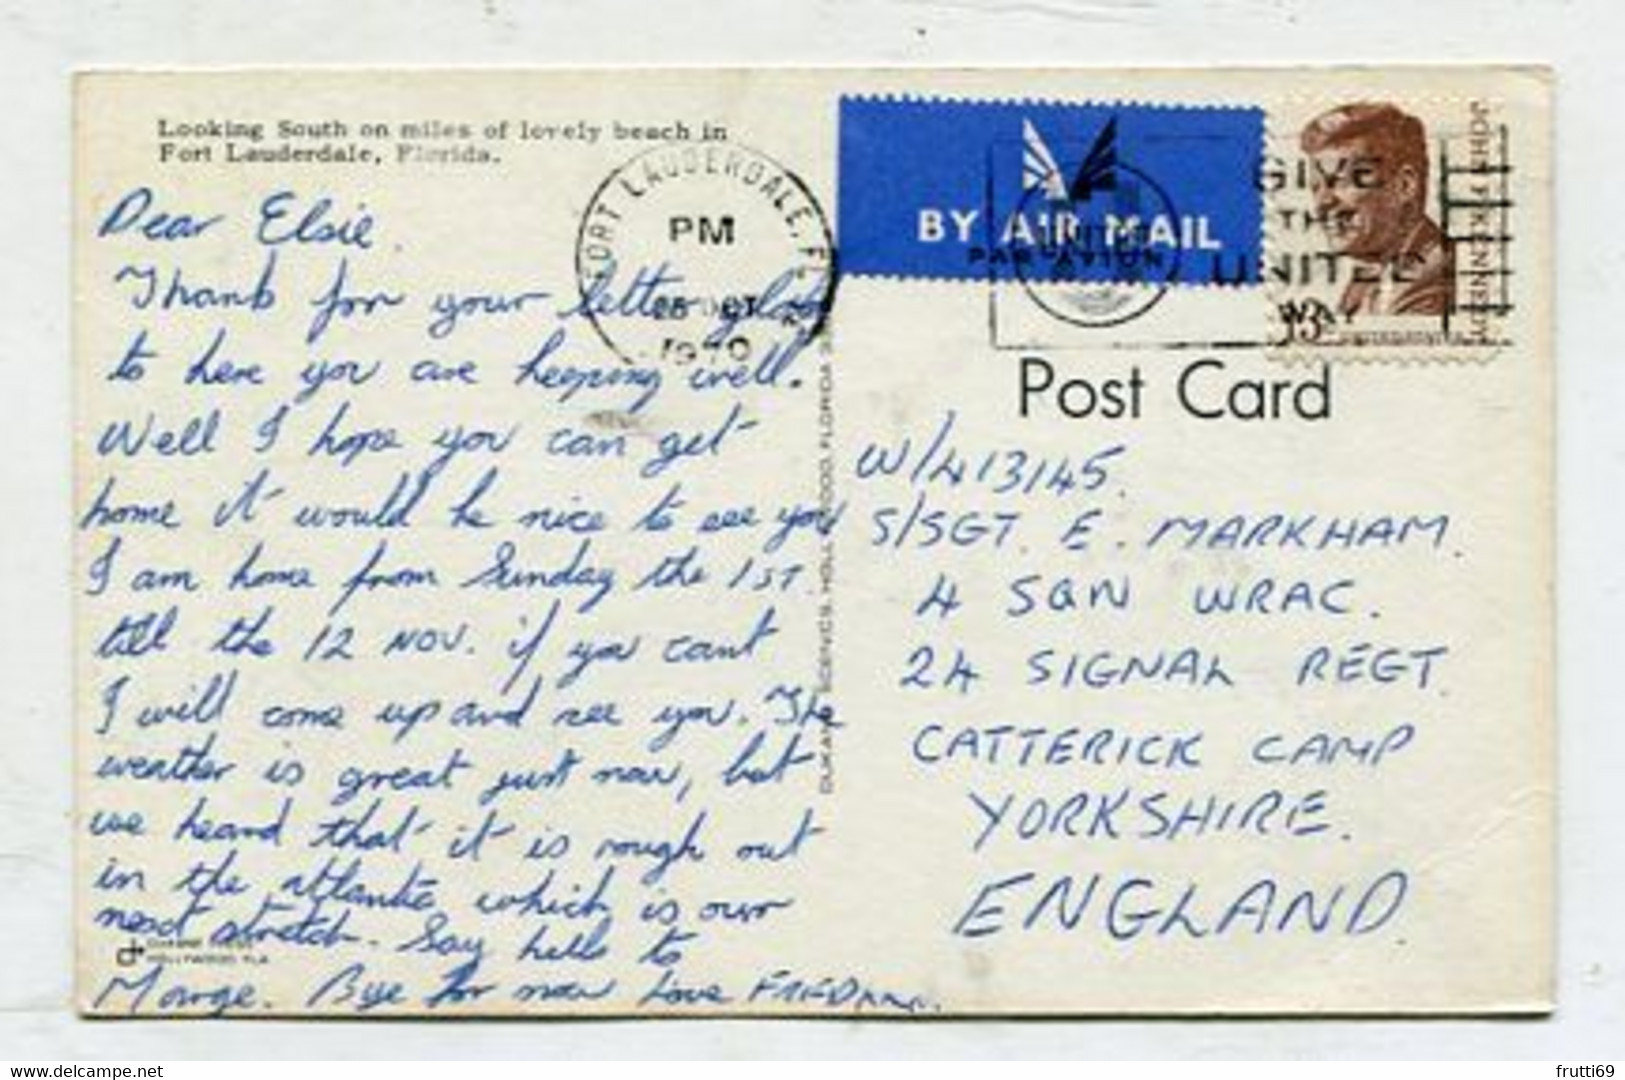 Looking South on miles of lovely beach in
Fort Lauderdale, Florida.
Dear Elsie.
Thank for your letter glad
to here you are keeping well.
Well I hope you can get
home it would be nice to see you
I am home from Sunday the 1ST.
till the 12 NOV. if you cant
I will come up and see you. The
weather is great just now, but
we heard that it is rough out
in the atlantic which is our
next stretch. Say hello to
Marge. Bye for now Love
FORT LAUDERDALE, FL
PM
1970
BY AIR MAIL
PAR AVION
GIVE
THE
UNITED
WAY
UNITED
JOHN F. KENNEDY
13c
Post Card
W/413145.
S/SGT. E. MARKHAM.
4 SQN WRAC.
24 SIGNAL REGT.
CATTERICK CAMP
YORKSHIRE.
ENGLAND.
HOLLYWOOD, FLORIDA
HOLLYWOOD, FLA.
frutti69